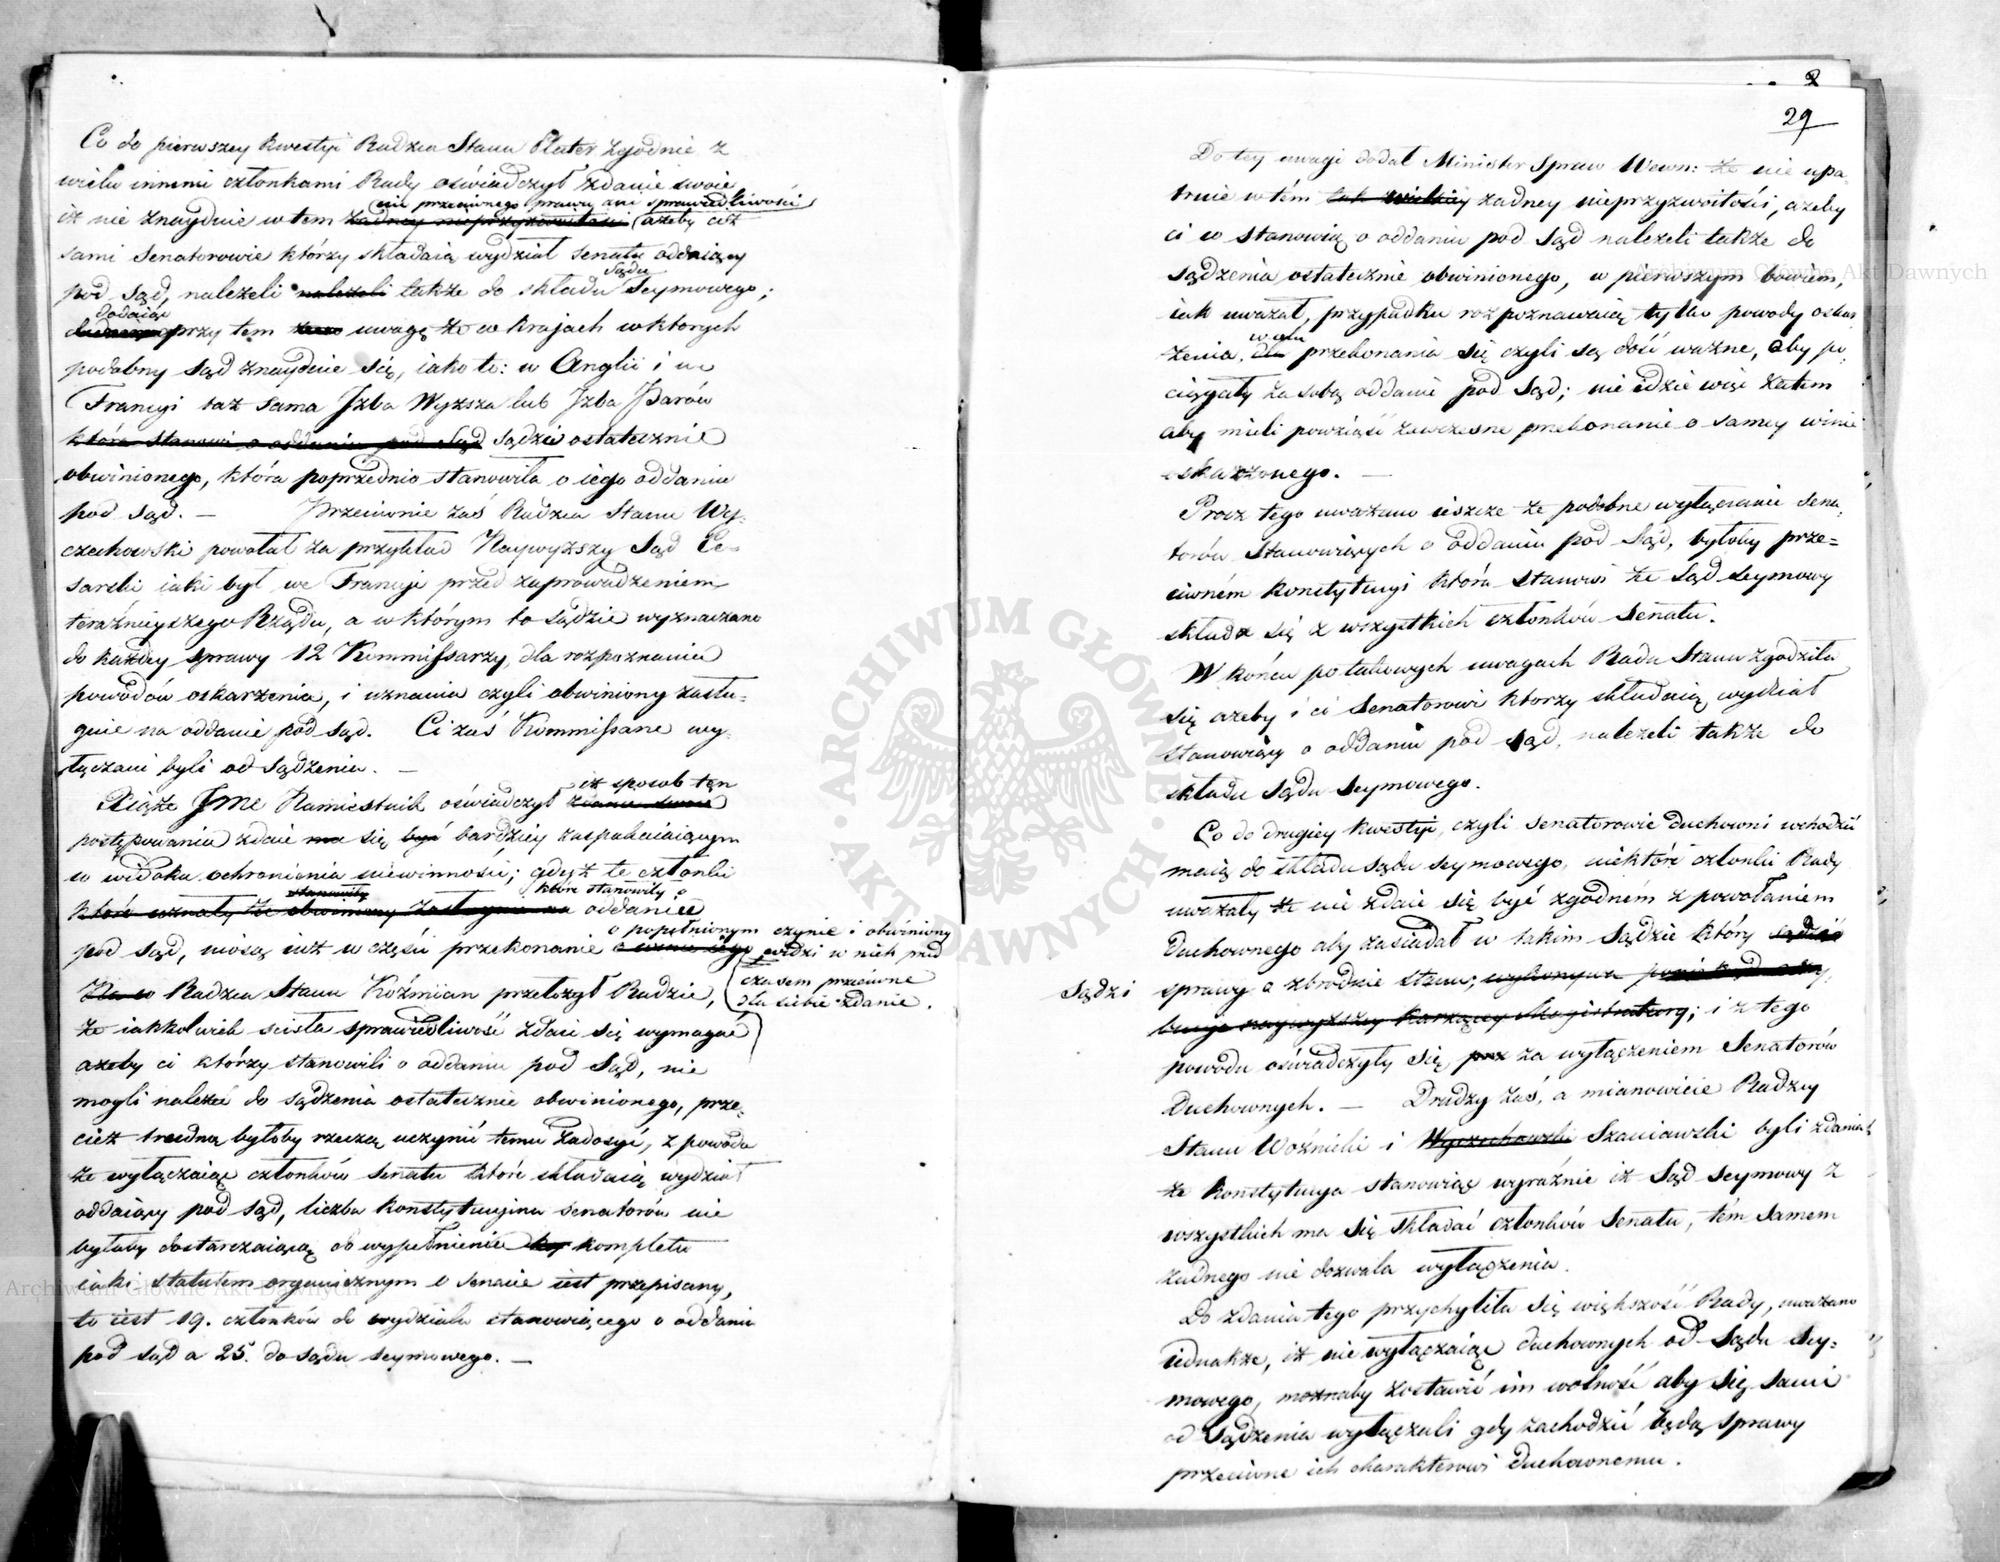 Co do pierwszey kwestyi Radzca Stanu Plater zgodnie z
wielu innemi członkami Rady oświadczył zdanie swoie
nic przeciwnego prawu ani sprawiedliwości
iż nie znayduie w tem żadney nieprzyzwoitości ażeby ciż
sami Senatorowie którzy składaią wydział Senatu oddaiący
Sądu
pod Sąd, należeli należeli także do składu Seymowego;
dodaiąc
przy tem uwagę że w krajach w ktorych
podobny Sąd znayduie się, iako to: w Anglii i we
Francyi taż sama Jzba Wyższa lub Jzba Parów
która stanowi o oddaniu pod Sąd sądzi ostatecznie
obwinionego, która poprzednio stanowiła o iego oddaniu
pod Sąd. — Przeciwnie zaś Radzca Stanu Wy-
czechowski powołał za przykład Naywyższy Sąd Ce-
sarski iaki był we Francyi przed zaprowadzeniem
teraźnieyszego Rządu, a w którym to sądzie wyznaczano
do każdey sprawy 12 Kommissarzy, dla rozpoznania
powodów oskarżenia, i uznania czyli obwiniony zasłu-
guie na oddanie pod Sąd. Ci zaś Kommissarze wy-
łączani byli od Sądzenia. —
iż sposob ten
Xiąże Jmć Namiestnik oświadczył zdanie swoie
postępowania zdaie ma się być bardziey zaspakaiaiącym
w widoku ochronienia niewinności; gdyż te członki
stanowiły które stanowiły o
które uznały że obwiniony zasługuie na oddanie
o popełnionym czynie i obwiniony
pod sąd, niosą iuż w części przekonanie o winie iego widzi w nich przed
czasem przeciwne
dla siebie zdanie.
Radzca Stanu Koźmian przełożył Radzie,
że iakkolwiek ścisła sprawiedliwość zdaie się wymagać
ażeby ci którzy stanowili o oddaniu pod Sąd, nie
mogli należeć do sądzenia ostatecznie obwinionego, prze-
cież trudną byłoby rzeczą uczynić temu zadosyć, z powodu
że wyłączaiąc członków Senatu które składaią wydział
oddaiący pod sąd, liczba konstytucyjna senatorów nie
byłaby dostarczaiącą do wypełnienia kompletu
iaki statutem organicznym o senacie iest przepisany,
to iest 19. członków do wydziału stanowiącego o oddaniu
pod sąd a 25. do sądu seymowego. —
29
Do tey uwagi dodał Minister Spraw Wewn: że nie upa-
truie w tém tak wielkiey żadney nieprzyzwoitości, ażeby
ci co stanowią o oddaniu pod Sąd należeli także do
sądzenia ostatecznie obwinionego, w pierwszym bowiem,
iak uważał, przypadku rozpoznawaią tylko powody oskar
w celu
żenia, dla przekonania się czyli są dość ważne, aby po-
ciągały za sobą oddanie pod Sąd; nie idzie więc zatem
aby mieli powziąść zawczesne przekonanie o samey winie
oskarżonego. —
Procz tego uważano ieszcze że podobne wyłączanie Sena-
torów stanowiących o oddaniu pod Sąd, byłoby prze=
ciwném konstytucyi która stanowi że Sąd Seymowy
składa się z wszystkich członków Senatu.
W końcu po takowych uwagach Rada Stanu zgodziła
się ażeby i ci Senatorowie ktorzy składaią wydział
stanowiący o oddaniu pod sąd, należeli także do
składu Sądu Seymowego.
Co do drugiey kwestyi, czyli Senatorowie Duchowni wchodzić
maią do składu Sądu Seymowego, niektóre członki Rady
uważały że nie zdaie się być zgodném z powołaniem
Duchownego aby zasiadał w takim Sądzie który sądzić
Sądzi sprawy o zbrodnie stanu,
i z tego
powodu oświadczyły się za wyłączeniem Senatorów
Duchownych. — Drudzy zaś, a mianowicie Radzcy
Stanu Woźnicki i Wyczechowski Szaniawski byli zdania
że konstytucya stanowiąc wyraźnie iż Sąd Seymowy z
wszystkich ma się składać członków Senatu, tém samem
żadnego nie dozwala wyłączenia.
Do zdania tego przychyliła się większość Rady, uważano
iednakże, iż nie wyłączaiąc duchownych od Sądu Sey-
mowego, możnaby zostawić im wolność aby się sami
od Sądzenia wyłączali gdy zachodzić będą sprawy
przeciwne ich charakterowi Duchownemu.
ARCHIWUM GŁÓWNE AKT DAWNYCH
Archiwum Główne Akt Dawnych
Archiwum Główne Akt Dawnych